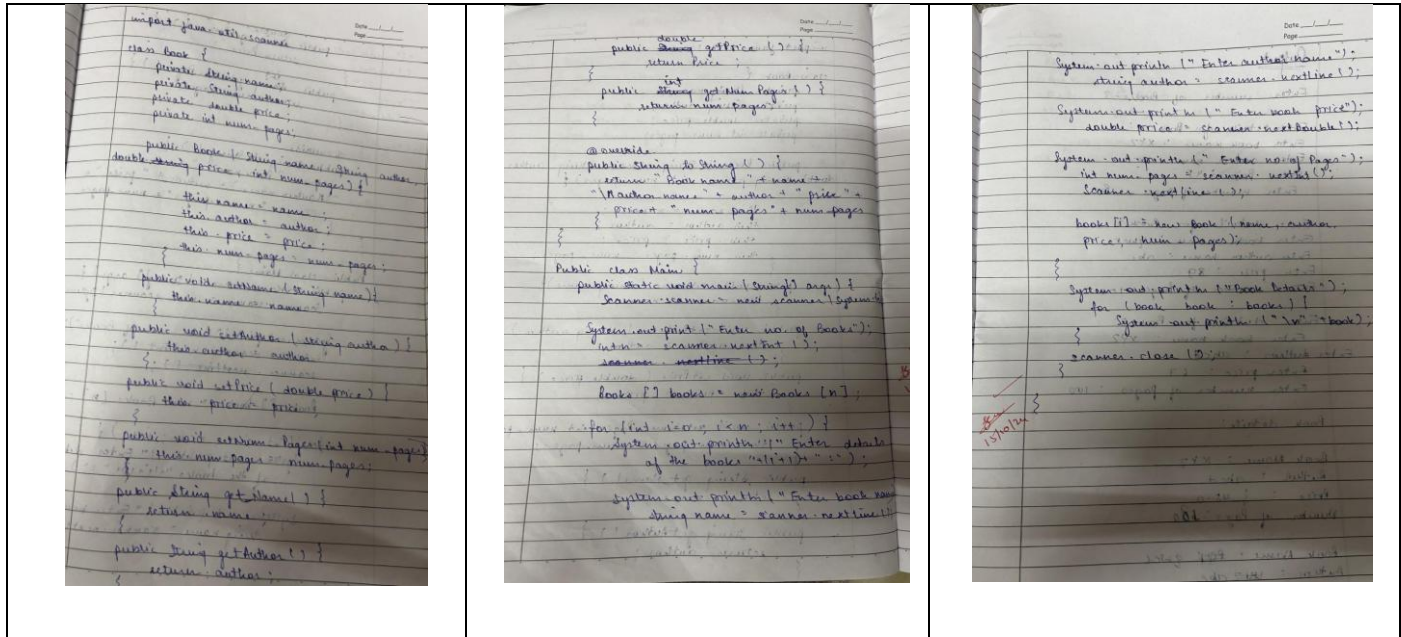 import java.util.scanner
class Book {
private String name;
private String author;
private double price;
private int num-pages;
public Book ( String name, String author,
double price, int num-pages) {
this.name = name ;
this.author = author ;
this.price = price ;
this.num-pages = num-pages ;
}
public void setName (String name) {
this.name = name
}
public void setAuthor ( string author ) {
this.author = author
}
public void setPrice ( double price ) {
this price = price ;
}
public void setNum-Pages (int num-pages)
this.num-pages = num-pages;
}
public String get Name( ) {
return name ;
}
public String getAuthor ( ) {
return author ;
}
Date __/__/__
Page ____
double
public getPrice ( ) {
return Price ;
}
int
public get Num Pages ( ) {
return num-pages;
}
@override
public String to String ( ) {
return "Book name," + name +
author name" + author + " price" +
price + " num-pages" + num-pages
}
}
Public class Main {
public static void main ( String[] args) {
Scanner scanner = new scanner (System
System.out.print (" Enter no. of Books");
int n = scanner.nextInt ( );
scanner nextline ( );
Books [ ] books = new Books [n] ;
for (int i=0 ; i < n ; i++ ) {
System.out.println (" Enter details
of the books "+(i+1)+ " :" ) ;
System.out.println (" Enter book name
string name = scanner.nextLine (
Date __/__/__
Page ____
System.out.println (" Enter author name");
string author = scanner.nextline ( );
System.out.println (" Enter book price");
double price = scanner.nextDouble ( );
System.out.println (" Enter no. of Pages");
int num-pages = scanner.nextInt ( );
Scanner.nextline ( );
books [i] = new Book (name, author,
price, num-pages);
}
System.out.println ("Book Details");
for (book book : books) {
System.out.println (" \n" +book);
}
scanner.close ( );
}
}
15/10/24